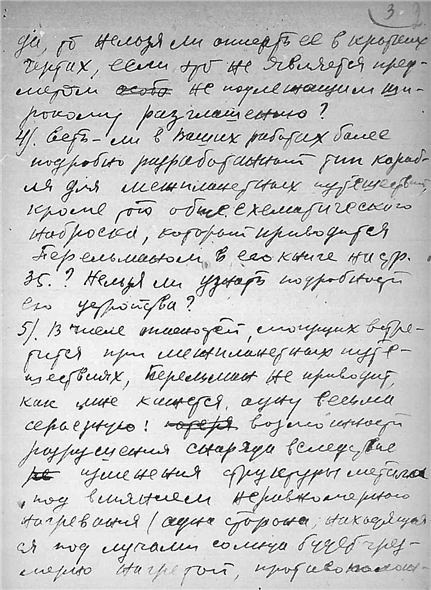 3.
да, то нельзя ли описать ее в кратких
чертах, если это не является пред-
метом особо не подлежащим ши-
рокому разглашению?
4). Есть-ли в Ваших работах более
подробно разработанный тип кораб-
ля для межпланетных путешествий
кроме того общесхематического
наброска, который приводится
Перельманом в его книге на стр.
35.? Нельзя ли узнать подробности
его устройства?
5). В числе опасностей, могущих встре-
тится при межпланетных путе-
шествиях, Перельман не приводит,
как мне кажется, одну весьма
серьезную: возможность
разрушения снаряда вследствие
изменения структуры металла
под влиянием неравномерного
нагревания (одна сторона, находящая
ся под лучами солнца будет чрез-
мерно нагретой, противополож-